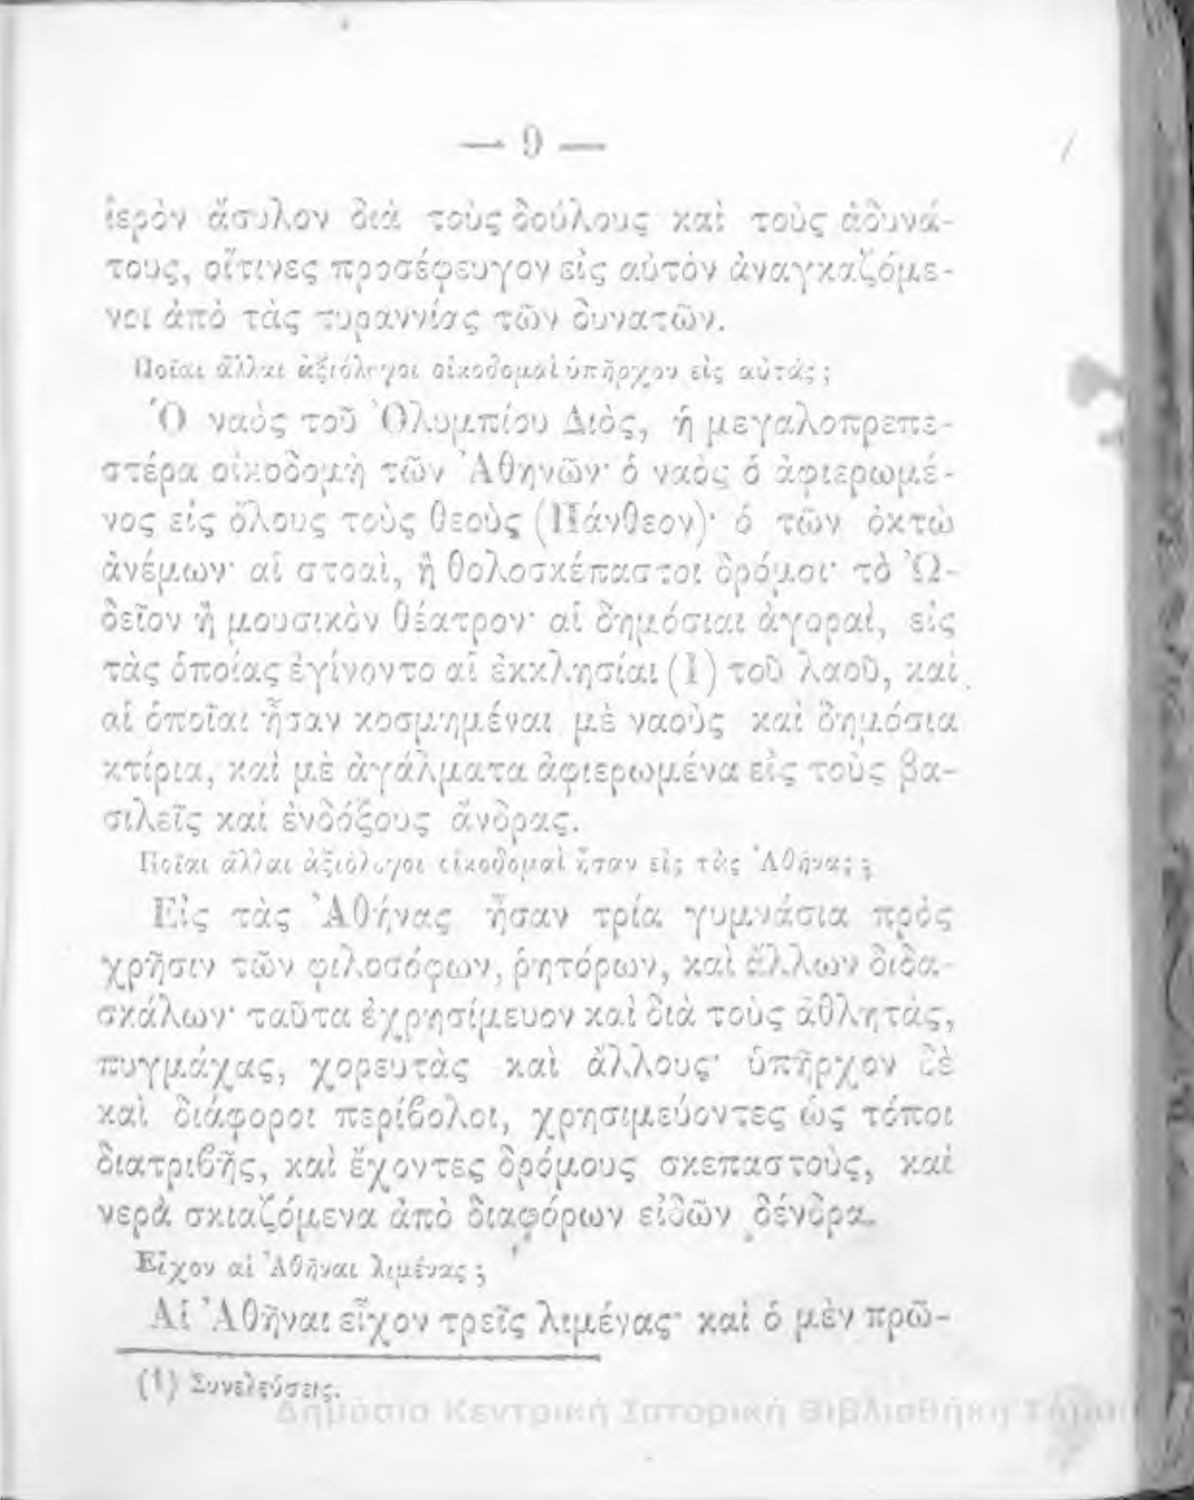 — 9 —
ἱερὸν ἄσυλον διὰ τοὺς δούλους καὶ τοὺς ἀδυνά-
τους, οἵτινες προσέφευγον εἰς αὐτὸν ἀναγκαζόμε-
νοι ἀπὸ τὰς τυραννίας τῶν δυνατῶν.
Ποῖαι ἄλλαι ἀξιόλογοι οἰκοδομαὶ ὑπῆρχον εἰς αὐτάς;
Ὁ ναὸς τοῦ Ὀλυμπίου Διὸς, ἡ μεγαλοπρεπε-
στέρα οἰκοδομὴ τῶν Ἀθηνῶν· ὁ ναὸς ὁ ἀφιερωμέ-
νος εἰς ὅλους τοὺς θεοὺς (Πάνθεον)· ὁ τῶν ὀκτὼ
ἀνέμων· αἱ στοαὶ, ἢ θολοσκέπαστοι δρόμοι· τὸ Ὠ-
δεῖον ἢ μουσικὸν θέατρον· αἱ δημόσιαι ἀγοραὶ, εἰς
τὰς ὁποίας ἐγίνοντο αἱ ἐκκλησίαι (1) τοῦ λαοῦ, καὶ
αἱ ὁποῖαι ἦσαν κοσμημέναι μὲ ναοὺς καὶ δημόσια
κτίρια, καὶ μὲ ἀγάλματα ἀφιερωμένα εἰς τοὺς βα-
σιλεῖς καὶ ἐνδόξους ἄνδρας.
Ποῖαι ἄλλαι ἀξιόλογοι οἰκοδομαὶ ἦσαν εἰς τὰς Ἀθήνας;
Εἰς τὰς Ἀθήνας ἦσαν τρία γυμνάσια πρὸς
χρῆσιν τῶν φιλοσόφων, ῥητόρων, καὶ ἄλλων διδα-
σκάλων· ταῦτα ἐχρησίμευον καὶ διὰ τοὺς ἀθλητάς,
πυγμάχας, χορευτὰς καὶ ἄλλους· ὑπῆρχον δὲ
καὶ διάφοροι περίβολοι, χρησιμεύοντες ὡς τόποι
διατριβῆς, καὶ ἔχοντες δρόμους σκεπαστοὺς, καὶ
νερὰ σκιαζόμενα ἀπὸ διαφόρων εἰδῶν δένδρα.
Εἶχον αἱ Ἀθῆναι λιμένας;
Αἱ Ἀθῆναι εἶχον τρεῖς λιμένας· καὶ ὁ μὲν πρῶ-
(1) Συνελεύσεις.
Δημόσια Κεντρική Ιστορική Βιβλιοθήκη